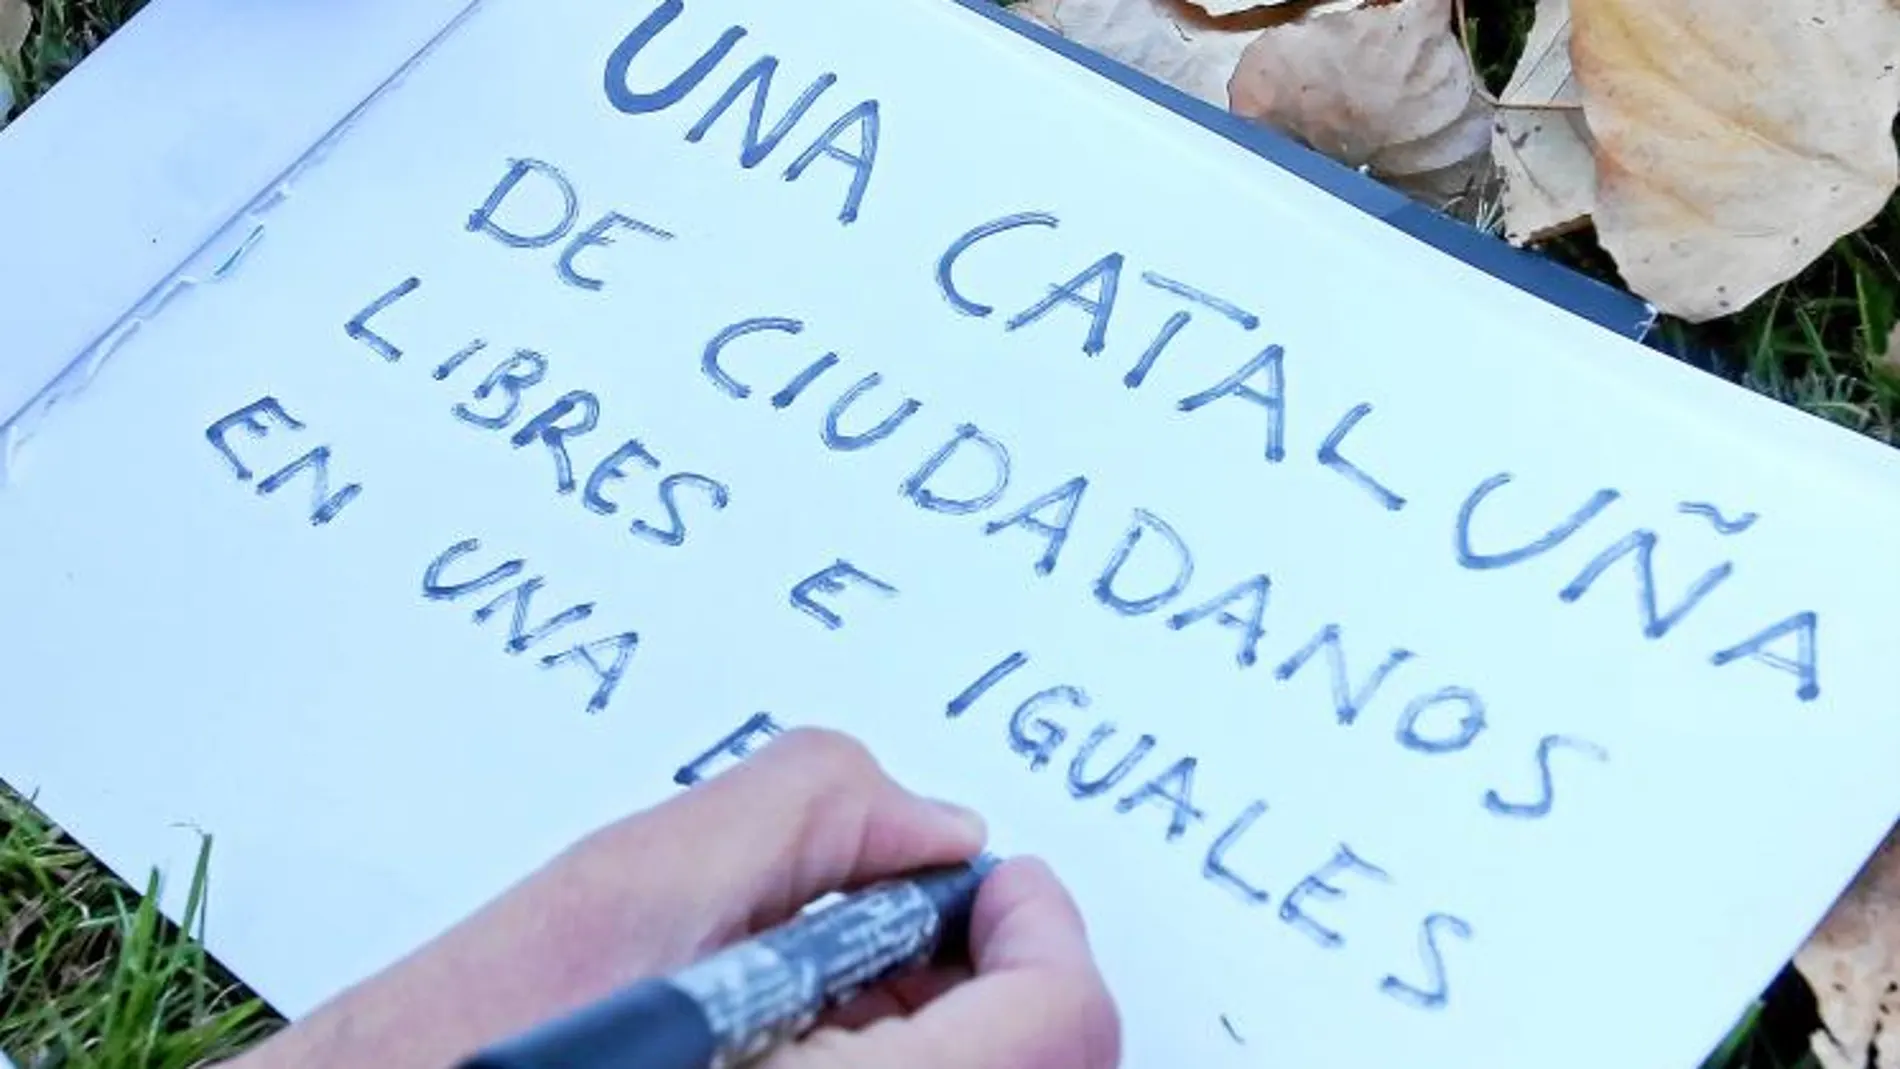 UNA CATALUÑA
DE CIUDADANOS
LIBRES E IGUALES
EN UNA E